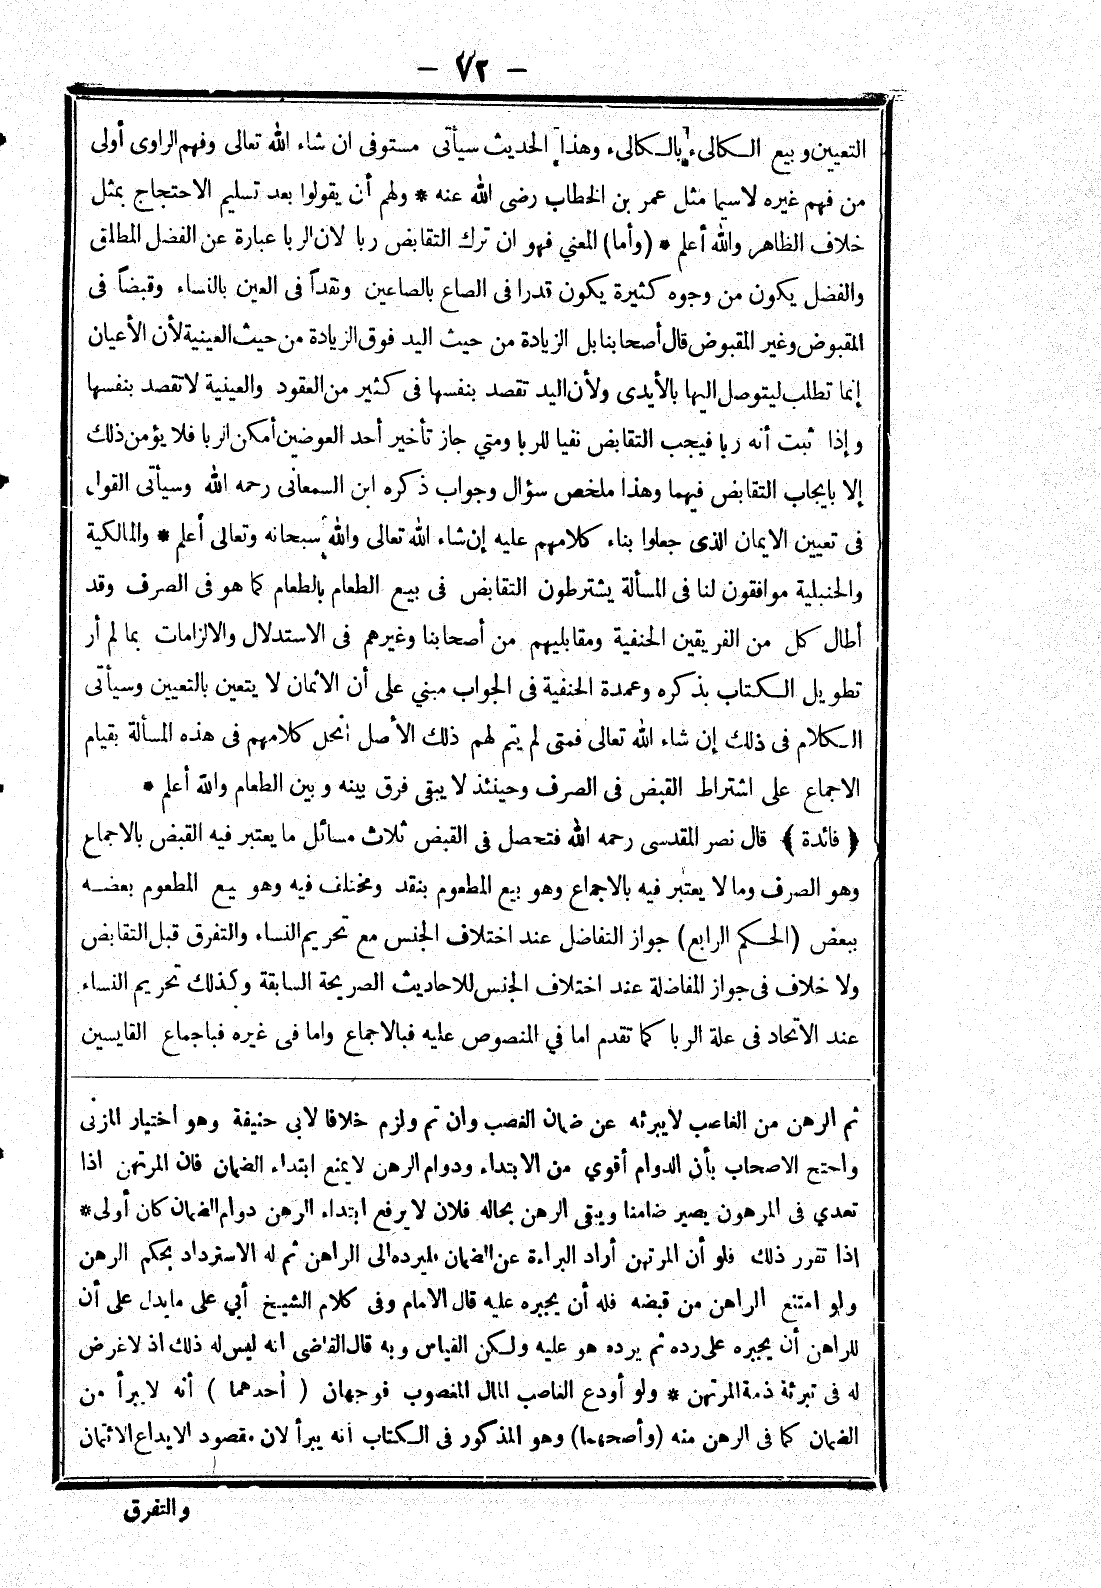 — ٧٢ —
التعيين وبيع الكالىء بالكالىء وهذا الحديث سيأتى مستوفى ان شاء الله تعالى وفهم الراوى أولى
من فهم غيره لاسيما مثل عمر بن الخطاب رضى الله عنه * ولهم أن يقولوا بعد تسليم الاحتجاج بمثل
خلاف الظاهر والله أعلم * (وأما) المعني فهو ان ترك التقابض ربا لان الربا عبارة عن الفضل المطلق
والفضل يكون من وجوه كثيرة يكون قدرا فى الصاع بالصاعين ونقداً فى العين بالنساء وقبضاً فى
المقبوض وغير المقبوض قال أصحابنا بل الزيادة من حيث اليد فوق الزيادة من حيث العينية لأن الأعيان
إنما تطلب ليتوصل اليها بالأيدى ولأن اليد تقصد بنفسها فى كثير من العقود والعينية لا تقصد بنفسها
وإذا ثبت أنه ربا فيجب التقابض نفيا للربا ومتي جاز تأخير أحد العوضين أمكن الربا فلا يؤمن ذلك
إلا بايجاب التقابض فيهما وهذا ملخص سؤال وجواب ذكره ابن السمعانى رحمه الله وسيأتى القول
فى تعيين الايمان الذى جعلوا بناء كلامهم عليه إن شاء الله تعالى والله سبحانه وتعالى أعلم * والمالكية
والحنبلية موافقون لنا فى المسألة يشترطون التقابض فى بيع الطعام بالطعام كما هو فى الصرف وقد
أطال كل من الفريقين الحنفية ومقابليهم من أصحابنا وغيرهم فى الاستدلال والالزامات بما لم أر
تطويل الكتاب بذكره وعمدة الحنفية فى الجواب مبني على أن الاثمان لا يتعين بالتعيين وسيأتى
الكلام فى ذلك إن شاء الله تعالى فمتى لم يتم لهم ذلك الأصل انحل كلامهم فى هذه المسألة بقيام
الاجماع على اشتراط القبض فى الصرف وحينئذ لا يبقى فرق بينه وبين الطعام والله أعلم *
﴿ فائدة ﴾ قال نصر المقدسى رحمه الله فتحصل فى القبض ثلاث مسائل ما يعتبر فيه القبض بالاجماع
وهو الصرف وما لا يعتبر فيه بالاجماع وهو بيع المطعوم بنقد ومختلف فيه وهو بيع المطعوم بعضه
ببعض (الحكم الرابع) جواز التفاضل عند اختلاف الجنس مع تحريم النساء والتفرق قبل التقابض
ولا خلاف فى جواز المفاضلة عند اختلاف الجنس للاحاديث الصريحة السابقة وكذلك تحريم النساء
عند الاتحاد فى علة الربا كما تقدم اما في المنصوص عليه فبالاجماع واما فى غيره فباجماع القايسين
ثم الرهن من الغاصب لا يبرئه عن ضمان الغصب وان تم ولزم خلافا لابى حنيفة وهو اختيار المزنى
واحتج الاصحاب بأن الدوام أقوي من الابتداء ودوام الرهن لا يمنع ابتداء الضمان فان المرتهن اذا
تعدي فى المرهون يصير ضامنا ويبقى الرهن بحاله فلان لا يرفع ابتداء الرهن دوام الضمان كان أولى *
إذا تقرر ذلك فلو أن المرتهن أراد البراءة عن الضمان فليرده الى الراهن ثم له الاسترداد بحكم الرهن
ولو امتنع الراهن من قبضه فله أن يجبره عليه قال الامام وفى كلام الشيخ أبي على ما يدل على أن
للراهن أن يجبره على رده ثم يرده هو عليه ولكن القياس وبه قال القاضى انه ليس له ذلك اذ لا غرض
له فى تبرئة ذمة المرتهن * ولو أودع الغاصب المال المغصوب فوجهان ( أحدهما ) أنه لا يبرأ من
الضمان كما فى الرهن منه (وأصحهما) وهو المذكور فى الكتاب انه يبرأ لان مقصود الايداع الائتمان
والتفرق